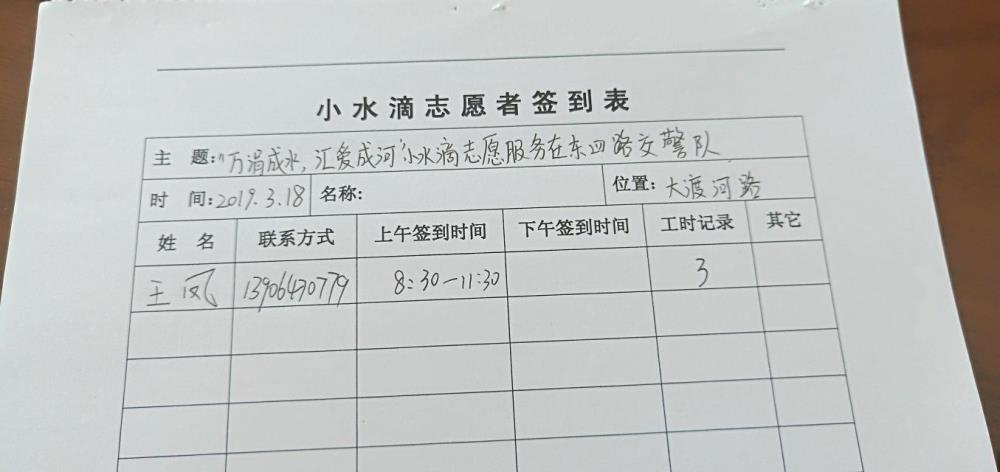 小水滴志愿者签到表
主 题:"万涓成水,汇爱成河"小水滴志愿服务在东四路交警队
时 间:2019.3.18 名称: 位置:大渡河路
姓 名 联系方式 上午签到时间 下午签到时间 工时记录 其它
王凤 13906470779 8:30-11:30 3